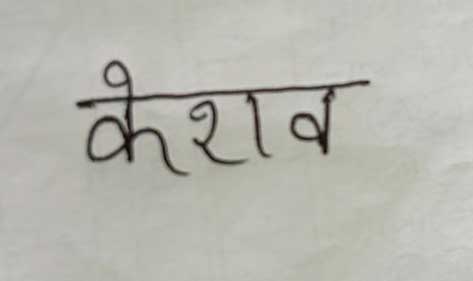 केशव